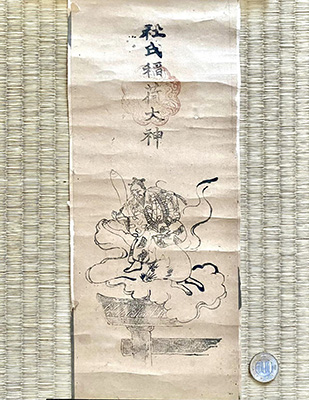 杜氏稲荷大神